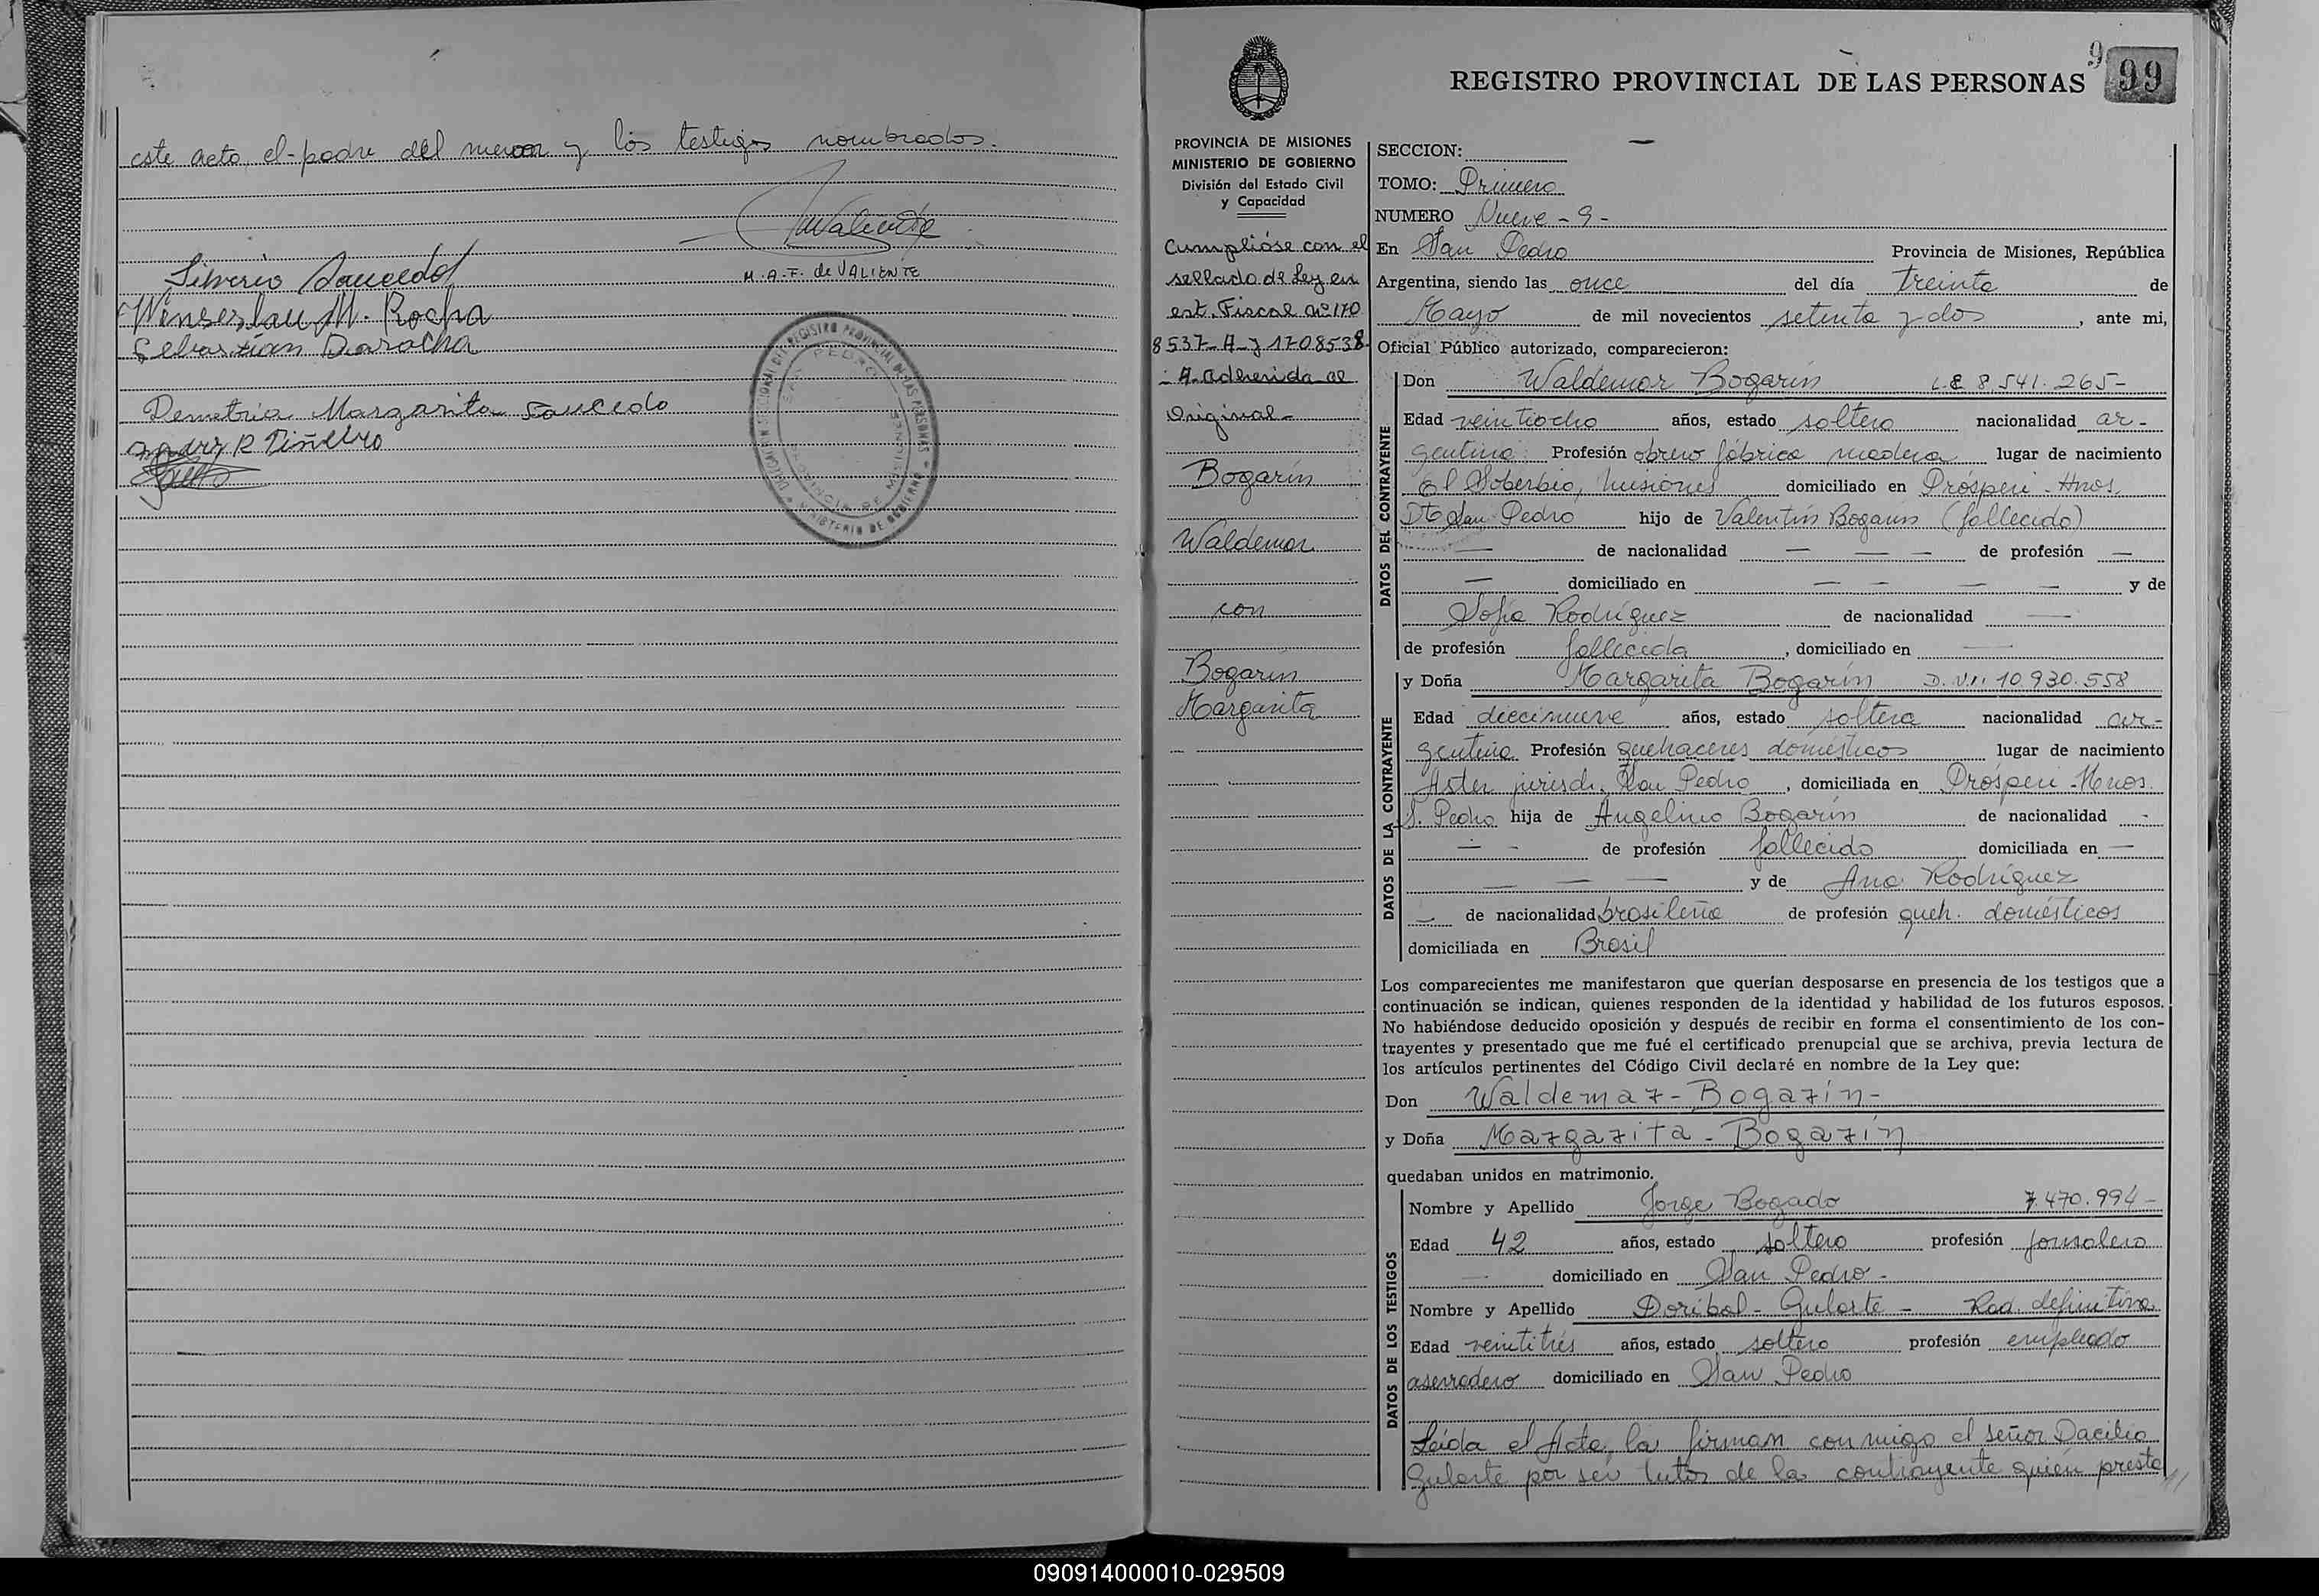 este acto el padre del menor y los testigos nombrados.
M.A.F. de VALIENTE
Silverio Saucedo
Wenseslau M. Rocha
Sebastián Darocha
Demetria Margarita Saucedo
R Piñeiro
SAN PEDRO
PROVINCIA DE MISIONES
MINISTERIO DE GOBIERNO
9
99
REGISTRO PROVINCIAL DE LAS PERSONAS
PROVINCIA DE MISIONES
MINISTERIO DE GOBIERNO
División del Estado Civil
y Capacidad
Cumplióse con el
sellado de Ley en
est. Fiscal Nº 170
8537-A y 1708538
-A adherida al
Original-
Bogarín
Waldemar
con
Bogarín
Margarita
SECCION: —
TOMO: Primero
NUMERO Nueve - 9 -
En San Pedro Provincia de Misiones, República
Argentina, siendo las once del día treinta de
Mayo de mil novecientos setenta y dos, ante mi,
Oficial Público autorizado, comparecieron:
DATOS DEL CONTRAYENTE
Don Waldemar Bogarín L.E 8.541.265-
Edad veintiocho años, estado soltero nacionalidad ar-
gentina Profesión obrero fábrica madera lugar de nacimiento
El Soberbio, Misiones domiciliado en Prósperi Hnos.
Dto San Pedro hijo de Valentín Bogarín (fallecido)
— de nacionalidad — — — de profesión —
— domiciliado en — — — — y de
Sofía Rodríguez de nacionalidad —
de profesión fallecida, domiciliado en —
DATOS DE LA CONTRAYENTE
y Doña Margarita Bogarín D.N.I. 10.930.558
Edad diecinueve años, estado soltera nacionalidad ar-
gentina Profesión quehaceres domésticos lugar de nacimiento
jurisd. San Pedro, domiciliada en Prósperi-Hnos.
S. Pedro hija de Angelino Bogarín de nacionalidad -
— - de profesión fallecido domiciliada en —
— — — y de Ana Rodríguez
— de nacionalidad brasileña de profesión queh. domésticos
domiciliada en Brasil
Los comparecientes me manifestaron que querían desposarse en presencia de los testigos que a
continuación se indican, quienes responden de la identidad y habilidad de los futuros esposos.
No habiéndose deducido oposición y después de recibir en forma el consentimiento de los con-
trayentes y presentado que me fué el certificado prenupcial que se archiva, previa lectura de
los artículos pertinentes del Código Civil declaré en nombre de la Ley que:
Don Waldemar - Bogarín -
y Doña Margarita - Bogarín
quedaban unidos en matrimonio.
DATOS DE LOS TESTIGOS
Nombre y Apellido Jorge Bogado 7.470.994-
Edad 42 años, estado soltero profesión jornalero
— domiciliado en San Pedro -
Nombre y Apellido Doribal - Gularte - Rad. definitiva
Edad veintitrés años, estado soltero profesión empleado
aserradero domiciliado en San Pedro
Leída el Acta, la firman conmigo el señor Dacilio
Gularte por ser tutor de la contrayente quien presta
090914000010-029509